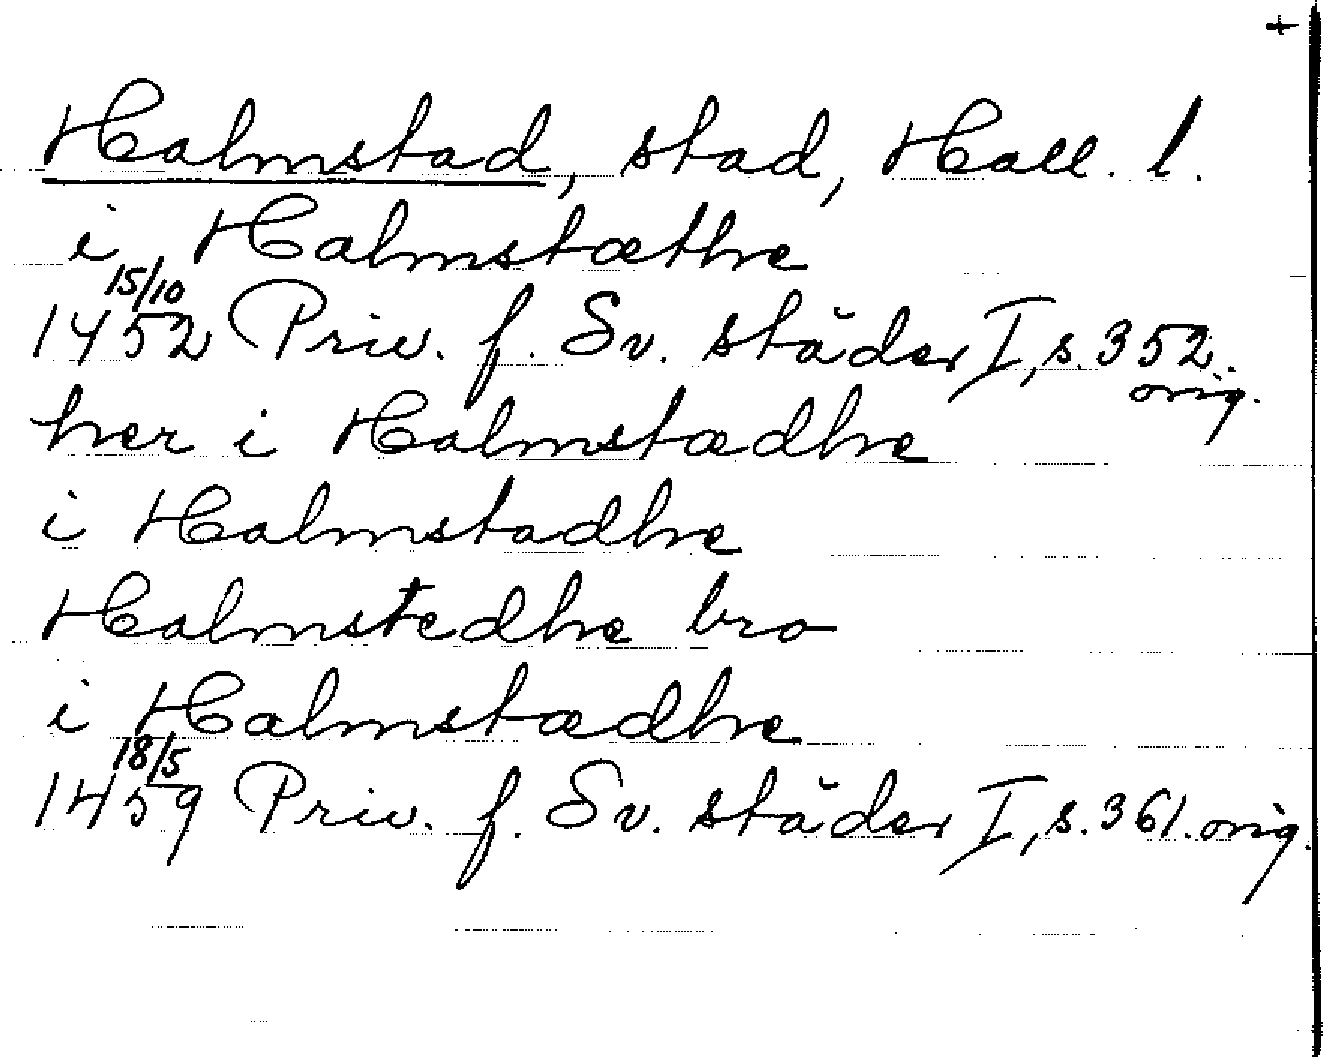 +
Halmstad, stad, Hall. l.
i Halmstæthe
15/10
1452 Priv. f. Sv. städer I, s. 352.
orig.
her i Halmstædhe
i Halmstadhe
Halmstedhe bro
i Halmstædhe
18/5
1459 Priv. f. Sv. städer I, s. 361. orig.